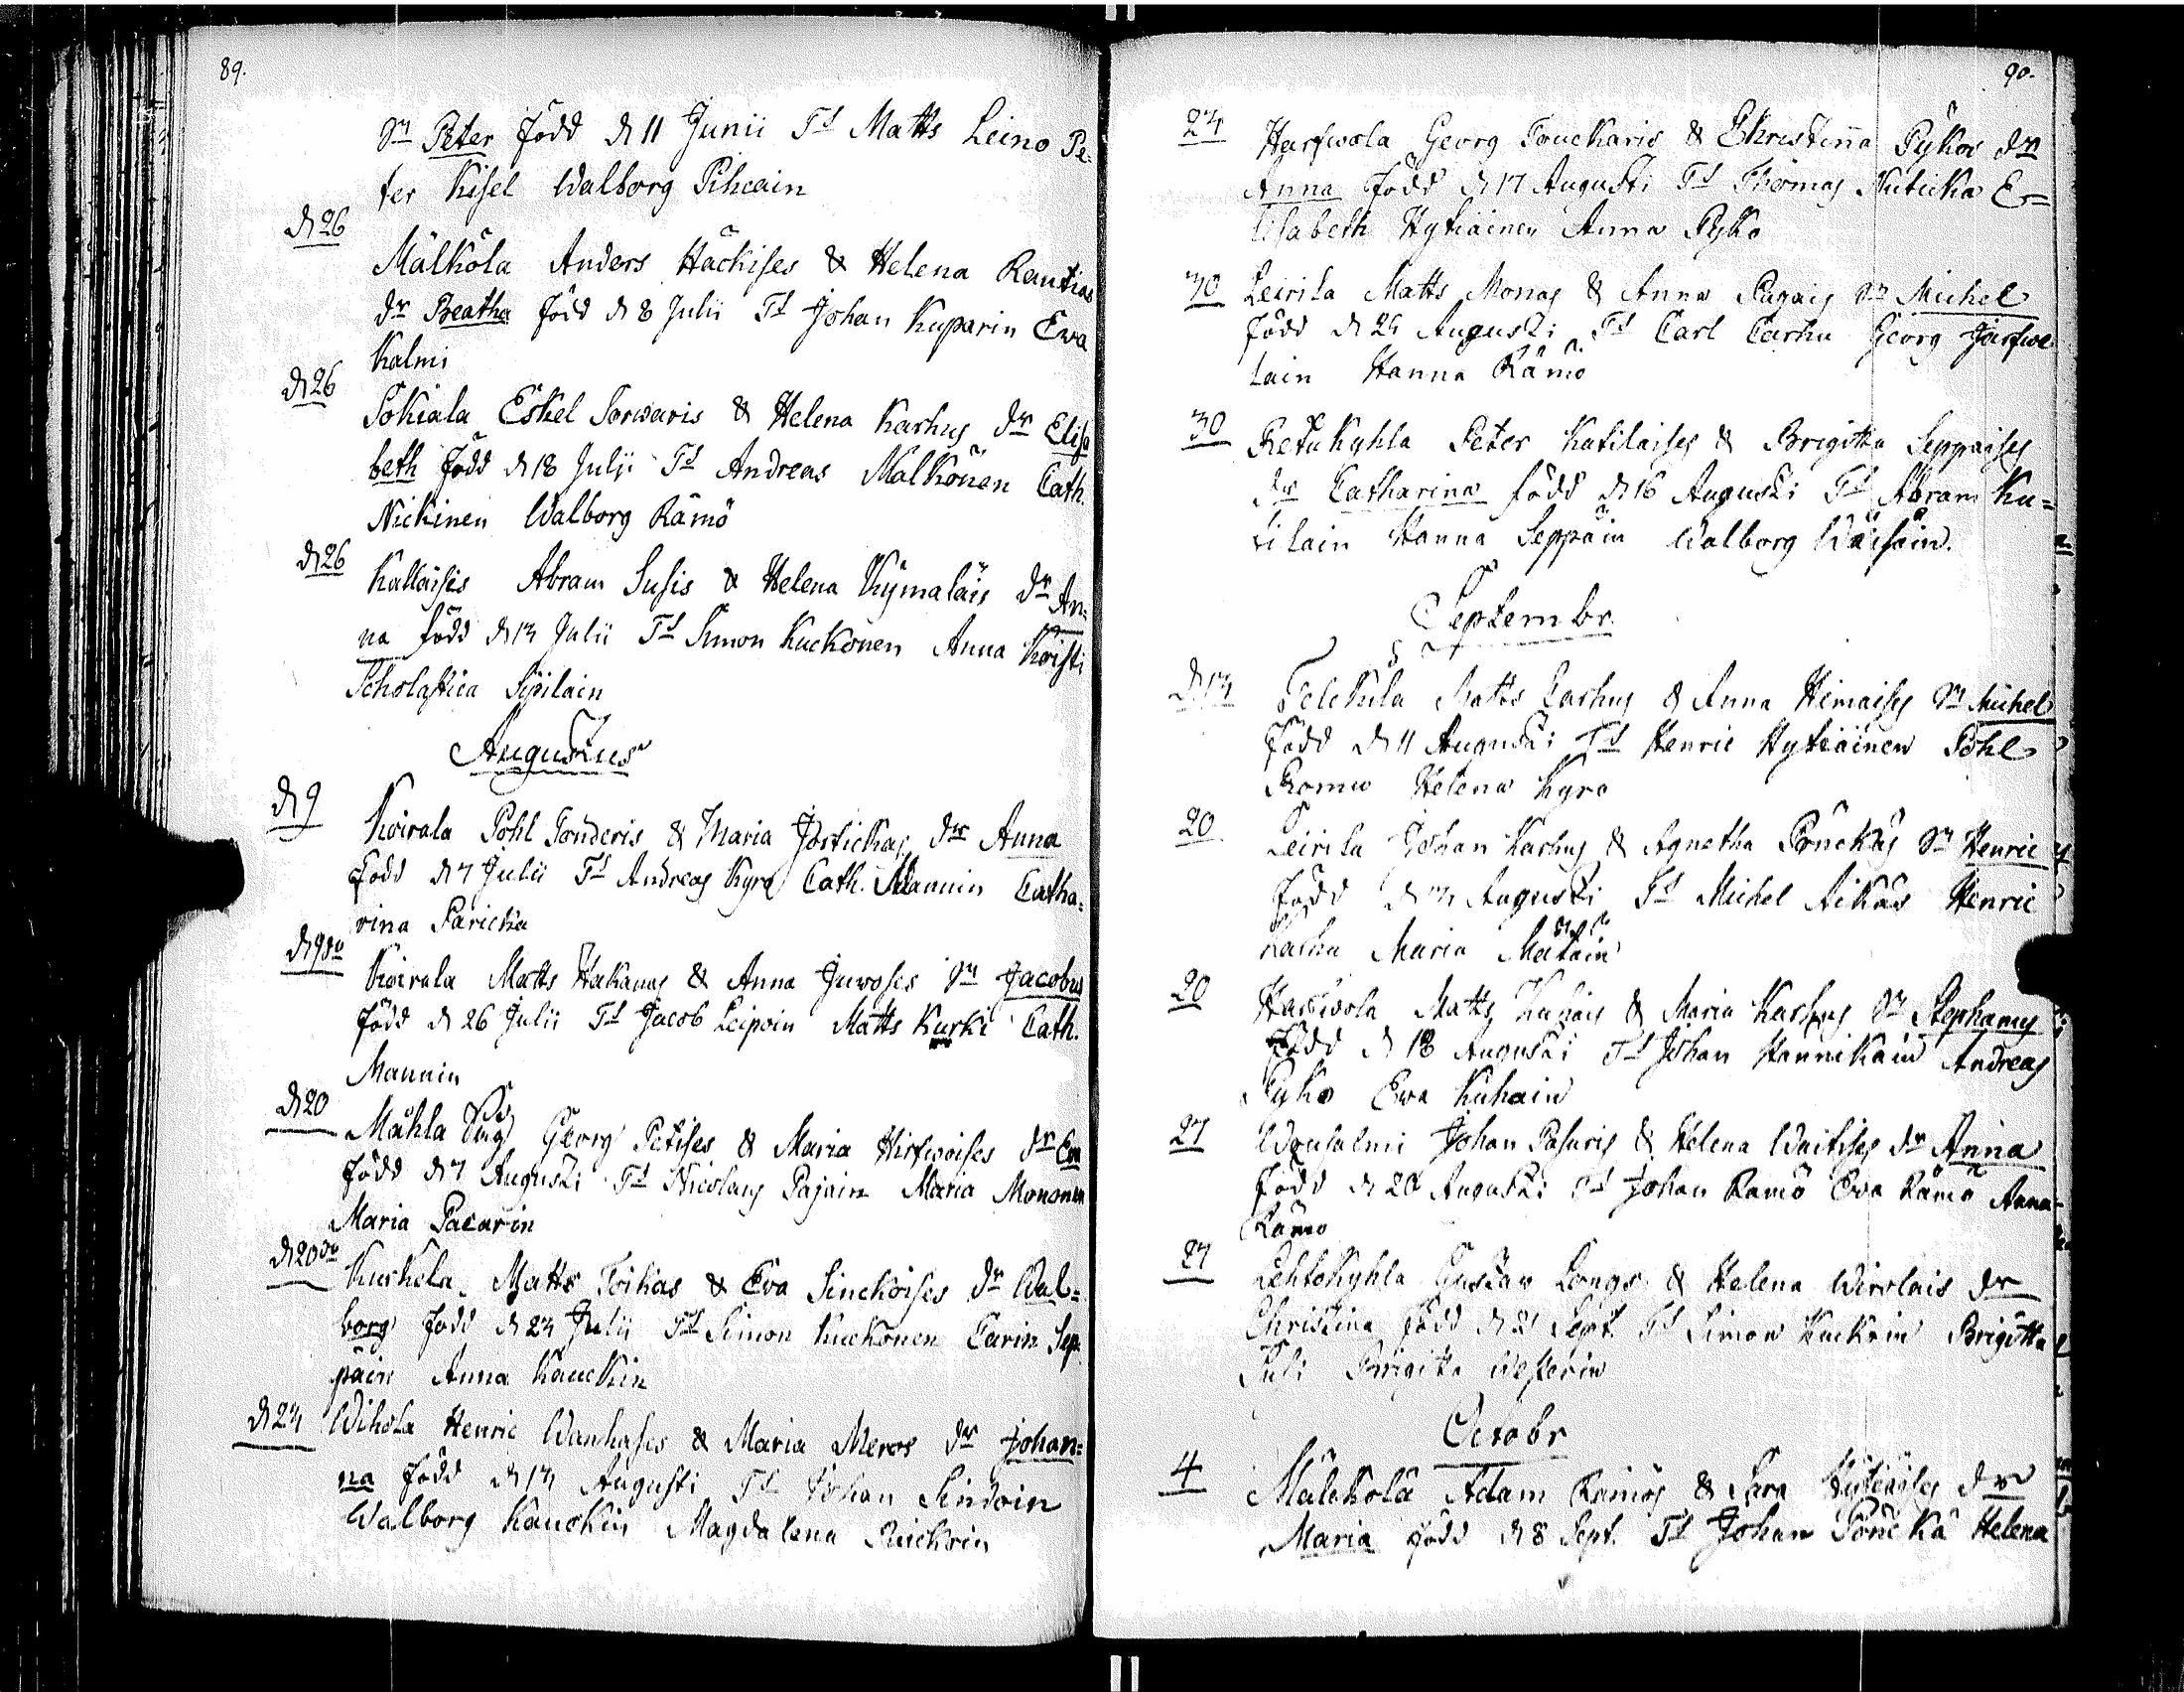 89.
Sn Peter född d 11 Junii Tt Matts Leino Pe-
ter Kisel Walborg Pihcain
d 26
Mälköla Anders Häckises & Helena Rautias
dr Beatha född d 8 Julii Tt Johan Kuparin Ewa
Kalmi
d 26
Sokiala Eskel Sorwaris & Helena Karhus dr Elisa
beth född d 18 Julii Tt Andreas Malkönen Cath.
Nickinen Walborg Rämö
d 26
Kallaisis Abram Susis & Helena Kymaläis dr An-
na född d 13 Julii Tt Simon Kuckonen Anna Koisti
Scholastica Sipilain
Augustus
d 9
Koirala Pohl Tonderis & Maria Jostickas dr Anna
född d 7 Julii Tt Andreas Kyrö Cath. Mannin Catha-
rina Paricka
d 9 do
Koirala Matts Hakanas & Anna Juwoses Sn Jacobus
född d 26 Julii Tt Jacob Leipoin Matts Kurki Cath.
Mannin
d 20
Mähla Georg Petises & Maria Hirfwoises dr Eva
född d 7 Augusti Tt Nicolaus Pajain Maria Mononen
Maria Pacarin
d 20 do
Kurkela Matts Toikas & Eva Sinckoises dr Wal-
borg född d 23 Julii Tt Simon Kuckonen Carin Sep-
päin Anna Kauckin
d 23
Wihola Henric Wanhases & Maria Meros dr Johan-
na född d 13 Augusti Tt Johan Sindoin
Walborg Kauckin Magdalena Ruickoin
90.
23 Harfwola Georg Touckaris & Christina Pykös dr
Anna född d 17 Augusti Tt Thomas Nuticka E-
lisabeth Hytiäinen Anna Pykö
30 Leirila Matts Monas & Anna Pagais Sn Michel
född d 24 Augusti Tt Carl Carhu Georg Järfwe-
lain Hanna Rämö
30
Retukyhla Peter Kutilaises & Brigitta Seppäises
dr Catharina född d 16 Augusti Tt Abram Ku-
tilain Hanna Seppäin Walborg Wäisäin.
Septembr.
d 13
Telckula Matts Karhus & Anna Himaises Sn Michel
född d 11 Augusti Tt Henric Hytiäinen Pohl
Romu Helena Kyrö
20
Leirila Johan Karhus & Agnetha Pönckäs Sn Henric
född d 3 Augusti Tt Michel Aikäs Henric
Karhu Maria Mätäin
20
Harfwola Matts Kuhais & Maria Karhus Sn Stephanus
född d 18 Augusti Tt Johan Hannikain Andreas
Pykö Ewa Kuhain
27
Wousalmi Johan Pasuris & Helena Waitises dr Anna
född d 20 Augusti Tt Johan Rämö Eva Rämö Anna
Rämö
27
Lehtokyhla Gustav Longs & Helena Wirolais dr
Christina född d 21 Sept. Tt Simon Kuckoin Brigitta
Susi Brigitta Westerin
Octobr
4
Mälckölä Adam Rämös & Sara Hytiäises dr
Maria född d 8 Sept. Tt Johan Pönckä Helena